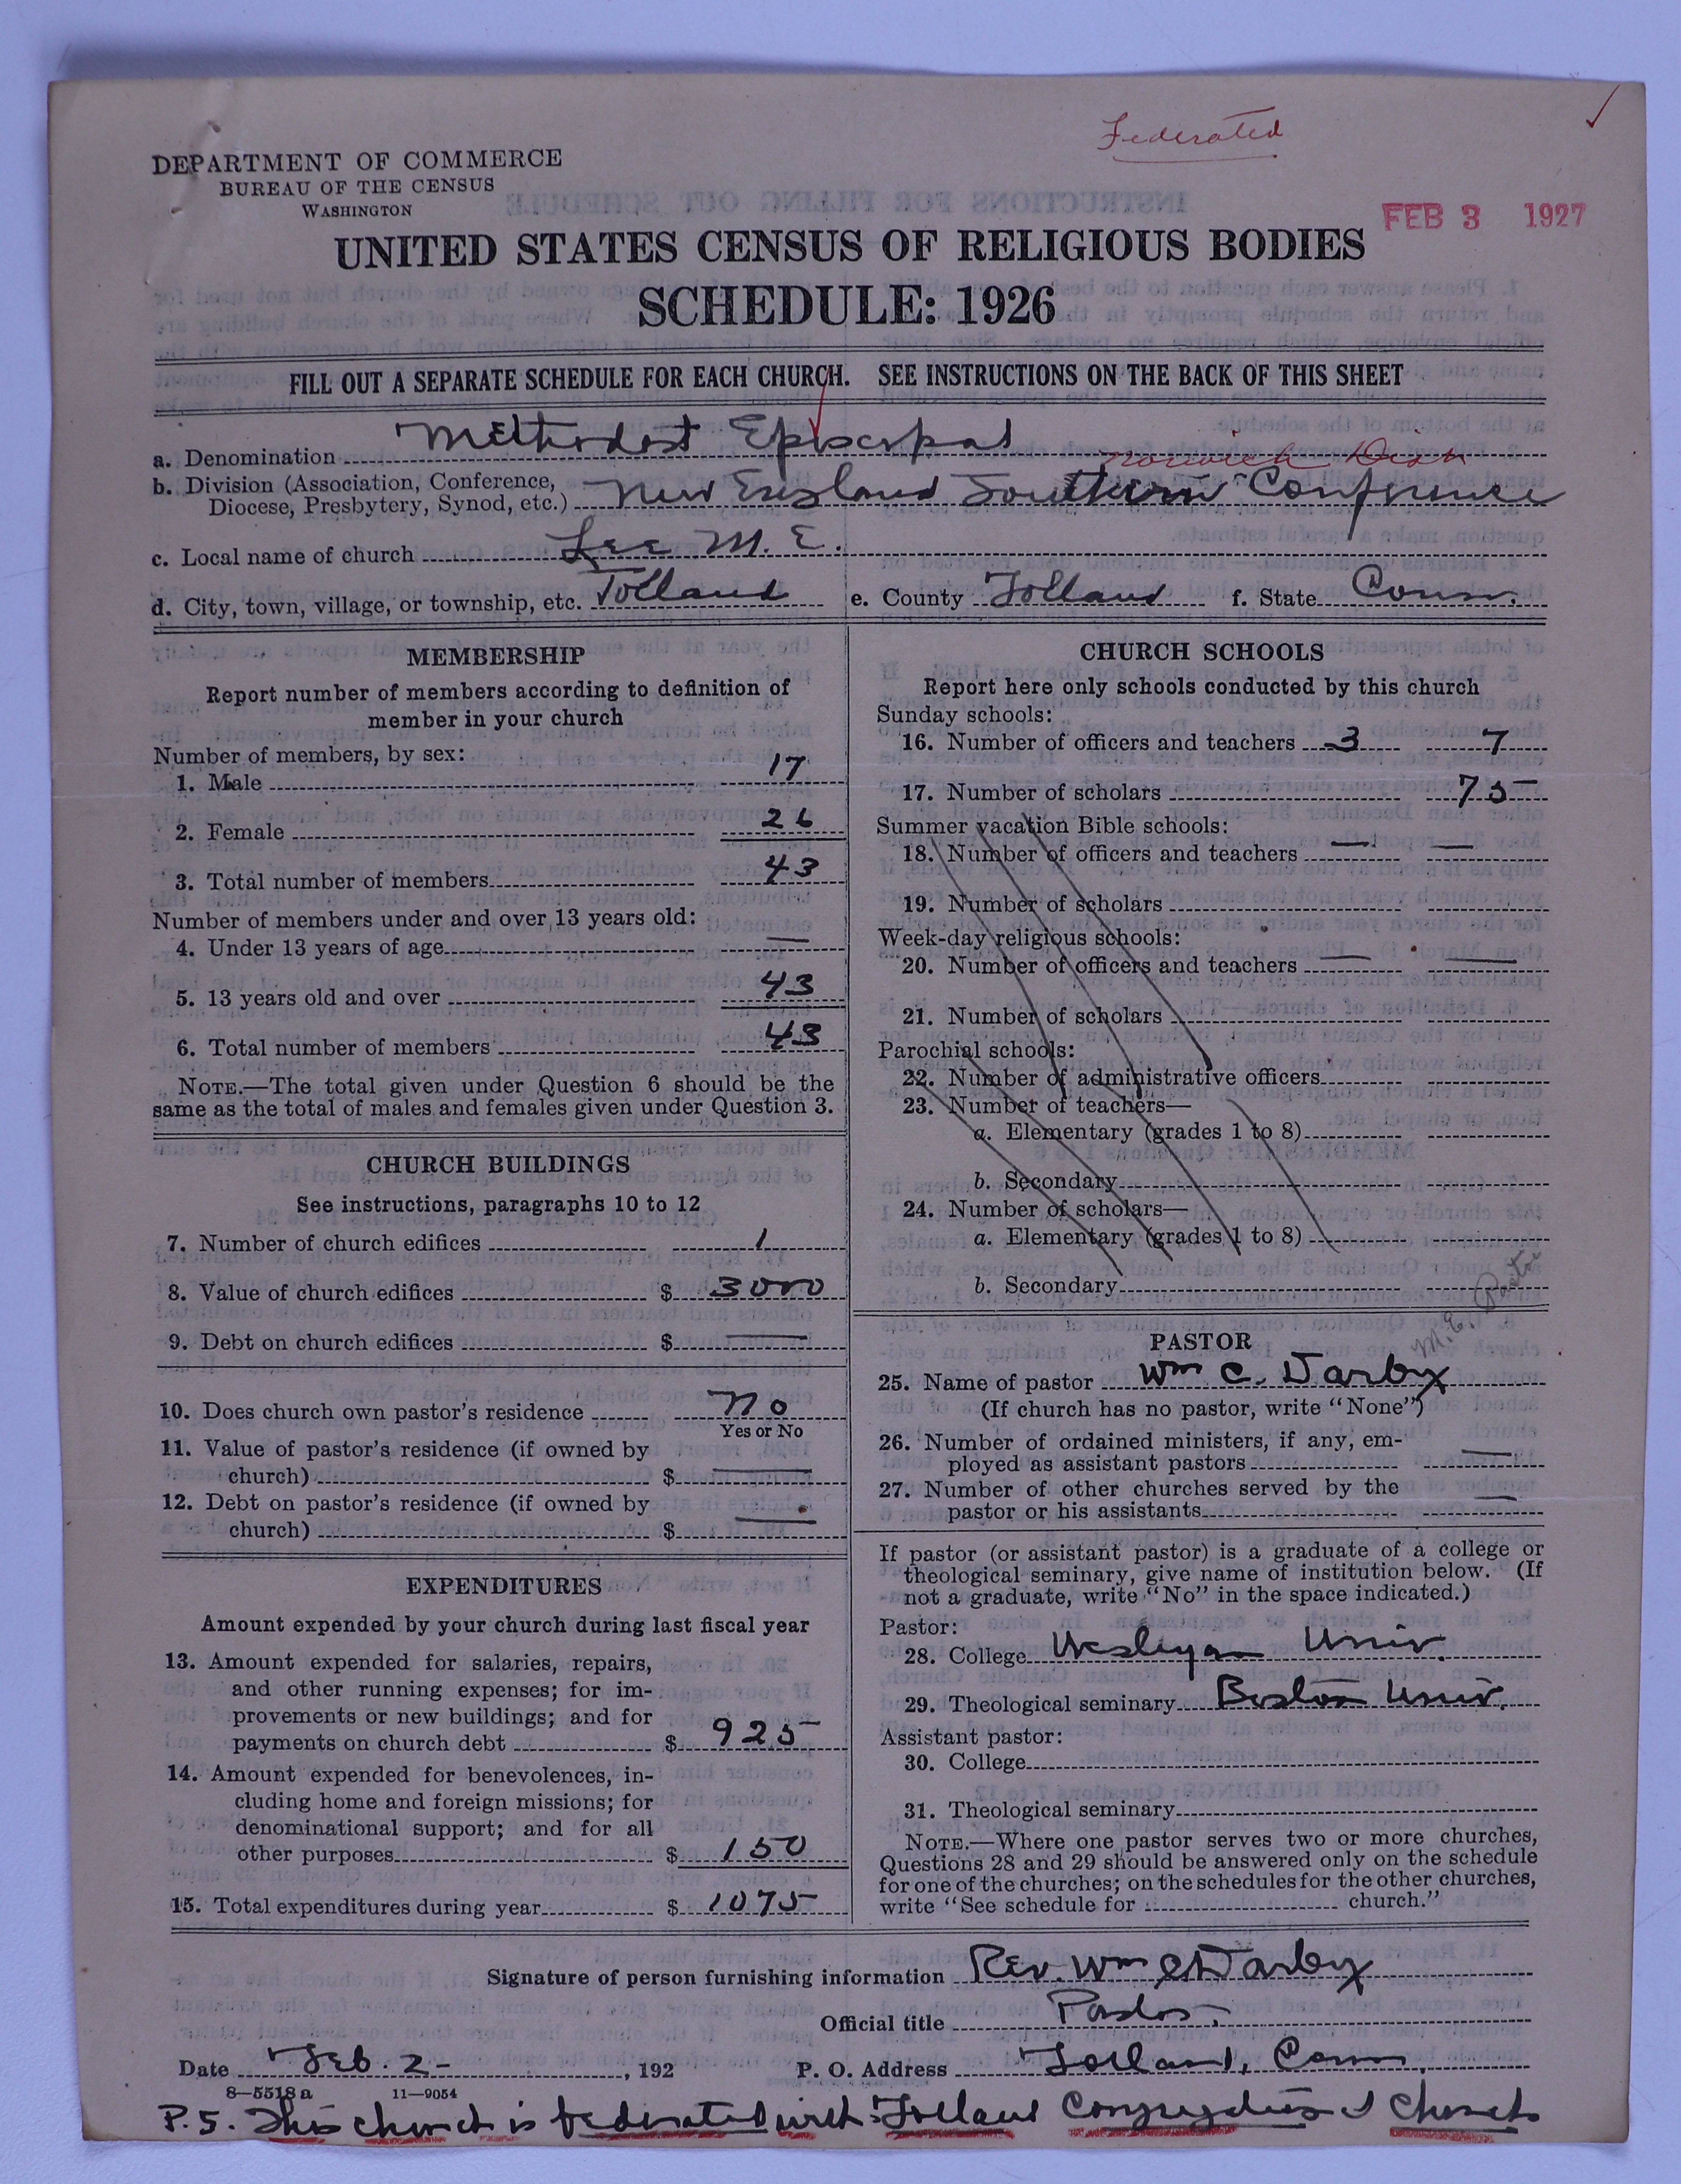 Federated
DEPARTMENT OF COMMERCE
BUREAU OF THE CENSUS
WASHINGTON
FEB 3 1927
UNITED STATES CENSUS OF RELIGIOUS BODIES
SCHEDULE: 1926
FILL OUT A SEPARATE SCHEDULE FOR EACH CHURCH. SEE INSTRUCTIONS ON THE BACK OF THIS SHEET
a. Denomination Methodist Episcopal
Norwich Dist
b. Division (Association, Conference,
Diocese, Presbytery, Synod, etc.) New England Southern Conference
c. Local name of church Lee M. E.
d. City, town, village, or township, etc. Tolland e. County Tolland f. State Conn.
MEMBERSHIP
Report number of members according to definition of
member in your church
Number of members, by sex:
1. Male 17
2. Female 26
3. Total number of members 43
Number of members under and over 13 years old:
4. Under 13 years of age —
5. 13 years old and over 43
6. Total number of members 43
NOTE.—The total given under Question 6 should be the
same as the total of males and females given under Question 3.
CHURCH BUILDINGS
See instructions, paragraphs 10 to 12
7. Number of church edifices 1
8. Value of church edifices $ 3000
9. Debt on church edifices $ —
10. Does church own pastor's residence No
Yes or No
11. Value of pastor's residence (if owned by
church) $ —
12. Debt on pastor's residence (if owned by
church) $ —
EXPENDITURES
Amount expended by your church during last fiscal year
13. Amount expended for salaries, repairs,
and other running expenses; for im-
provements or new buildings; and for
payments on church debt $ 925
14. Amount expended for benevolences, in-
cluding home and foreign missions; for
denominational support; and for all
other purposes $ 150
15. Total expenditures during year $ 1075
CHURCH SCHOOLS
Report here only schools conducted by this church
Sunday schools:
16. Number of officers and teachers 3 7
17. Number of scholars 75
Summer vacation Bible schools:
18. Number of officers and teachers — —
19. Number of scholars
Week-day religious schools:
20. Number of officers and teachers — —
21. Number of scholars
Parochial schools:
22. Number of administrative officers
23. Number of teachers—
a. Elementary (grades 1 to 8)
b. Secondary
24. Number of scholars—
a. Elementary (grades 1 to 8)
b. Secondary
M.E. Pastor
PASTOR
25. Name of pastor Wm C. Darby
(If church has no pastor, write "None")
26. Number of ordained ministers, if any, em-
ployed as assistant pastors —
27. Number of other churches served by the
pastor or his assistants —
If pastor (or assistant pastor) is a graduate of a college or
theological seminary, give name of institution below. (If
not a graduate, write "No" in the space indicated.)
Pastor:
28. College Wesleyan Univ.
29. Theological seminary Boston Univ.
Assistant pastor:
30. College
31. Theological seminary
NOTE.—Where one pastor serves two or more churches,
Questions 28 and 29 should be answered only on the schedule
for one of the churches; on the schedules for the other churches,
write "See schedule for church."
Signature of person furnishing information Rev. Wm C Darby
Official title Pastor
Date Feb. 2 , 192 P. O. Address Tolland, Conn.
8—5518 a 11—9054
P.S. This church is federated with Tolland Congregational Church